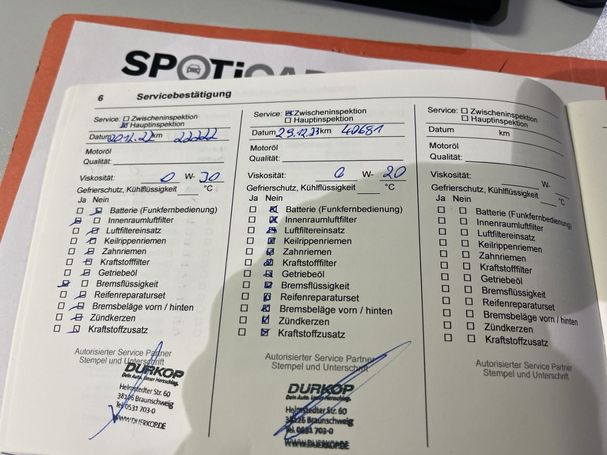 SPOTiCAR
6 Servicebestätigung
Service: Zwischeninspektion
Hauptinspektion
Datum 20.12.22 km 22222
Motoröl
Qualität:
Viskosität: 0 W- 30
Gefrierschutz, Kühlflüssigkeit °C
Ja Nein
Batterie (Funkfernbedienung)
Innenraumluftfilter
Luftfiltereinsatz
Keilrippenriemen
Zahnriemen
Kraftstofffilter
Getriebeöl
Bremsflüssigkeit
Reifenreparaturset
Bremsbeläge vorn / hinten
Zündkerzen
Kraftstoffzusatz
Autorisierter Service Partner
Stempel und Unterschrift
DÜRKOP
Dein Auto. Unser Herzschlag.
Helmstedter Str. 60
38126 Braunschweig
Tel. 0531 703-0
WWW.DUERKOP.DE
Service: Zwischeninspektion
Hauptinspektion
Datum 29.12.23 km 40681
Motoröl
Qualität:
Viskosität: 0 W- 20
Gefrierschutz, Kühlflüssigkeit °C
Ja Nein
Batterie (Funkfernbedienung)
Innenraumluftfilter
Luftfiltereinsatz
Keilrippenriemen
Zahnriemen
Kraftstofffilter
Getriebeöl
Bremsflüssigkeit
Reifenreparaturset
Bremsbeläge vorn / hinten
Zündkerzen
Kraftstoffzusatz
Autorisierter Service Partner
Stempel und Unterschrift
DÜRKOP
Dein Auto. Unser Herzschlag.
Helmstedter Str. 60
38126 Braunschweig
Tel. 0531 703-0
WWW.DUERKOP.DE
Service: Zwischeninspektion
Hauptinspektion
Datum km
Motoröl
Qualität:
Viskosität: W-
Gefrierschutz, Kühlflüssigkeit °C
Ja Nein
Batterie (Funkfernbedienung)
Innenraumluftfilter
Luftfiltereinsatz
Keilrippenriemen
Zahnriemen
Kraftstofffilter
Getriebeöl
Bremsflüssigkeit
Reifenreparaturset
Bremsbeläge vorn / hinten
Zündkerzen
Kraftstoffzusatz
Autorisierter Service Partner
Stempel und Unterschrift